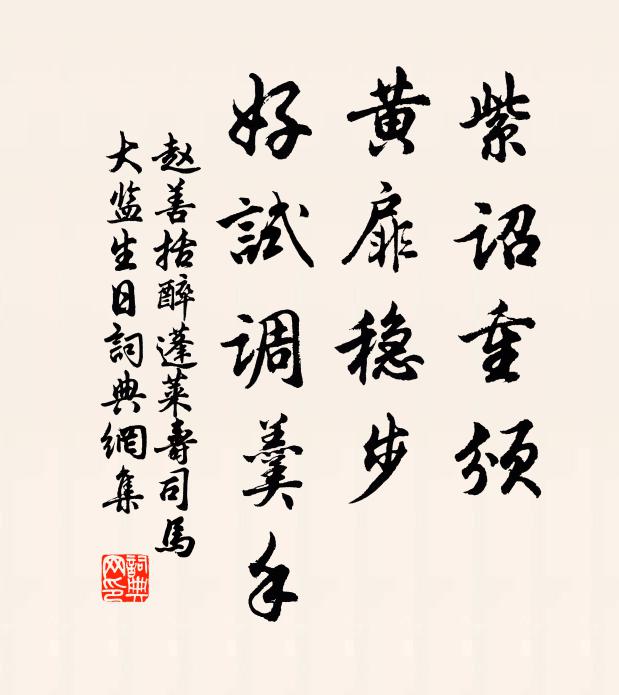 紫诏重颁
黄扉稳步
好試调羹手
赵善括醉蓬莱壽司馬
大监生日詞典網集
詞典
网印